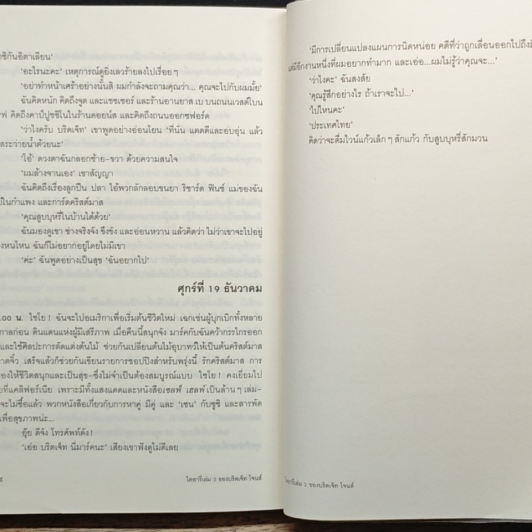 ซิกันอิตาเลียน'
'อะไรนะคะ' เหตุการณ์ดูยิ่งเลวร้ายลงไปเรื่อยๆ
'อย่าทำหน้าเศร้าอย่างนั้นสิ ผมกำลังจะถามคุณว่า... คุณจะไปกับผมมั้ย'
ฉันคิดหนัก คิดถึงจูด และแชซเซอร์ และร้านอานยาส เบ บนถนนเวสต์บ
ฟ คิดถึงคาปูชิโนในร้านคอยน์ส และคิดถึงถนนออกซฟอร์ด
'ว่าไงครับ บริดเจ็ท' เขาพูดอย่างอ่อนโยน 'ที่นั่น แดดดีและอบอุ่น แล้ว
สระว่ายน้ำด้วยนะ'
'โอ้' ดวงตาฉันกลอกซ้าย-ขวา ด้วยความสนใจ
'ผมล้างจานเอง' เขาสัญญา
ฉันคิดถึงเรื่องลูกปืน ปลา ไอ้พวกลักลอบขนยา ริชาร์ด ฟินช์ แม่ของฉัน
ในกำแพง และการ์ดคริสต์มาส
'คุณสูบบุหรี่ในบ้านได้ด้วย'
ฉันมองดูเขา ช่างจริงจัง ขึงขัง และอ่อนหวาน แล้วคิดว่า ไม่ว่าเขาจะไปอยู่
งหนไหน ฉันก็ไม่อยากอยู่โดยไม่มีเขา
'ค่ะ' ฉันพูดอย่างเป็นสุข 'ฉันอยากไป'
ศุกร์ที่ 19 ธันวาคม
.00 น. ไชโย! ฉันจะไปอเมริกาเพื่อเริ่มต้นชีวิตใหม่ เฉกเช่นผู้บุกเบิกทั้งหลาย
กาลก่อน ดินแดนแห่งผู้มีเสรีภาพ เมื่อคืนนี้สนุกจัง มาร์คกับฉันคว้ากรรไกรออก
และใช้ศิลปะการตัดแต่งต้นไม้ ช่วยกันเปลี่ยนต้นไม้อุบาทว์ให้เป็นต้นคริสต์มาส
าดจิ๋ว เสร็จแล้วก็ช่วยกันเขียนรายการชอปปิงสำหรับพรุ่งนี้ รักคริสต์มาส การ
องให้ชีวิตสนุกและเป็นสุข-ซึ่งไม่จำเป็นต้องสมบูรณ์แบบ ไชโย! คงเยี่ยมไป
ยที่แคลิฟอร์เนีย เพราะมีทั้งแสงแดดและหนังสือเซลฟ์ เฮลฟ์เป็นล้านๆ เล่ม-
จะไม่ซื้อแล้ว พวกหนังสือเกี่ยวกับการหาคู่ มีคู่ และ 'เซน' กับซูชิ และสารพัด
เพื่อสุขภาพน่ะ...
อุ๊ย ดีจัง โทรศัพท์ดัง!
'เอ่อ บริดเจ็ท นี่มาร์คนะ' เสียงเขาฟังดูไม่ดีเลย
ไดอารี่เล่ม ๖ ของบริดเจ็ท โจนส์
'มีการเปลี่ยนแปลงแผนการนิดหน่อย คดีที่ว่าถูกเลื่อนออกไปถึงมิ
แต่มีอีกงานหนึ่งที่ผมอยากทำมาก และเอ่อ...ผมไม่รู้ว่าคุณจะ...'
'ว่าไงคะ' ฉันสงสัย
'คุณรู้สึกอย่างไร ถ้าเราจะไป...'
'ไปไหนคะ'
'ประเทศไทย'
คิดว่าจะดื่มไวน์แก้วเล็กๆ สักแก้ว กับสูบบุหรี่สักมวน
ไดอารี่เล่ม ๖ ของบริดเจ็ท โจนส์